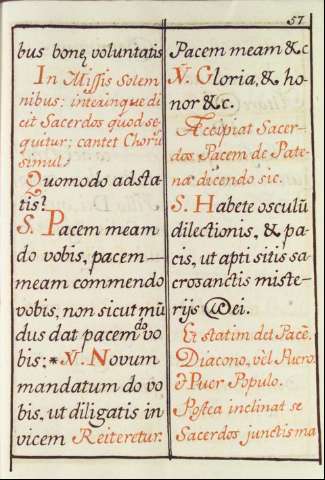 57
bus bonę voluntatis
In Missis Solem
nibus: interinque di
cit Sacerdos quod se-
quitur; cantet Chorus
simul.
Quomodo adsta
tis?
S. Pacem meam
do vobis, pacem
meam commendo
vobis, non sicut mũ
dus dat pacem do vo
bis: * V. Novum
mandatum do vo
bis, ut diligatis in
vicem Reiteretur.
Pacem meam &c
V. Gloria, & ho-
nor &c.
Accipiat Sacer-
dos Pacem de Pate-
na dicendo sic.
S. Habete osculũ
dilectionis, & pa-
cis, ut apti sitis sa
crosanctis miste-
rijs Dei.
Et statim det Pacẽ,
Diacono, vel Puero.
& Puer Populo.
Postea inclinat se
Sacerdos junctis ma